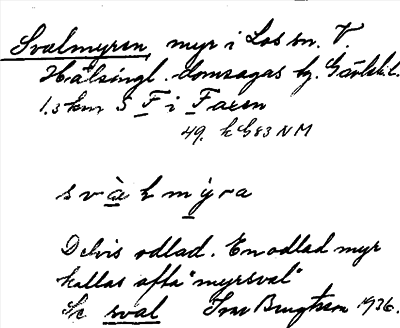 Svalmyren, myr i Los sn. V.
Hälsingl. domsagas tg. Gävlebl.
1.3 km S F i Faxen
49. k G 83 NM
s v à l m y r a
Delvis odlad. En odlad myr
kallas ofta "myrsval"
Se sval Ivar Bengtsson 1936.